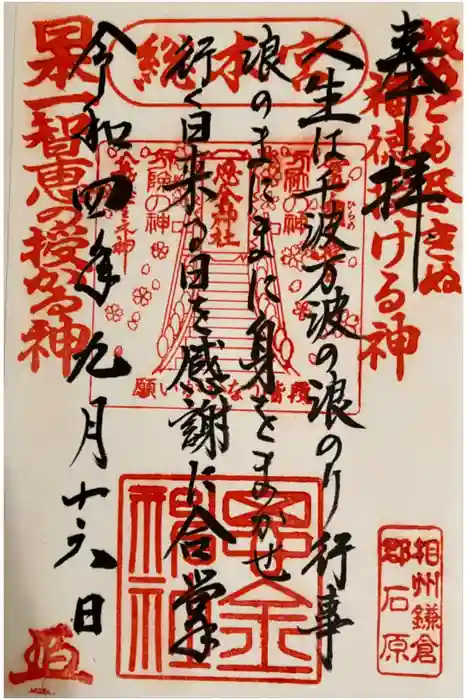 汲めども尽きぬ
福徳授ける神
奉拝
総本宮
人生は千波万波の浪のり行事
浪のまにまに身をまかせ
行く日来る日を感謝に合掌
令和四年九月十六日
日本一智恵の授かる神
思金神社
願いがかなう階段
思金神社
相州鎌倉
郡石原